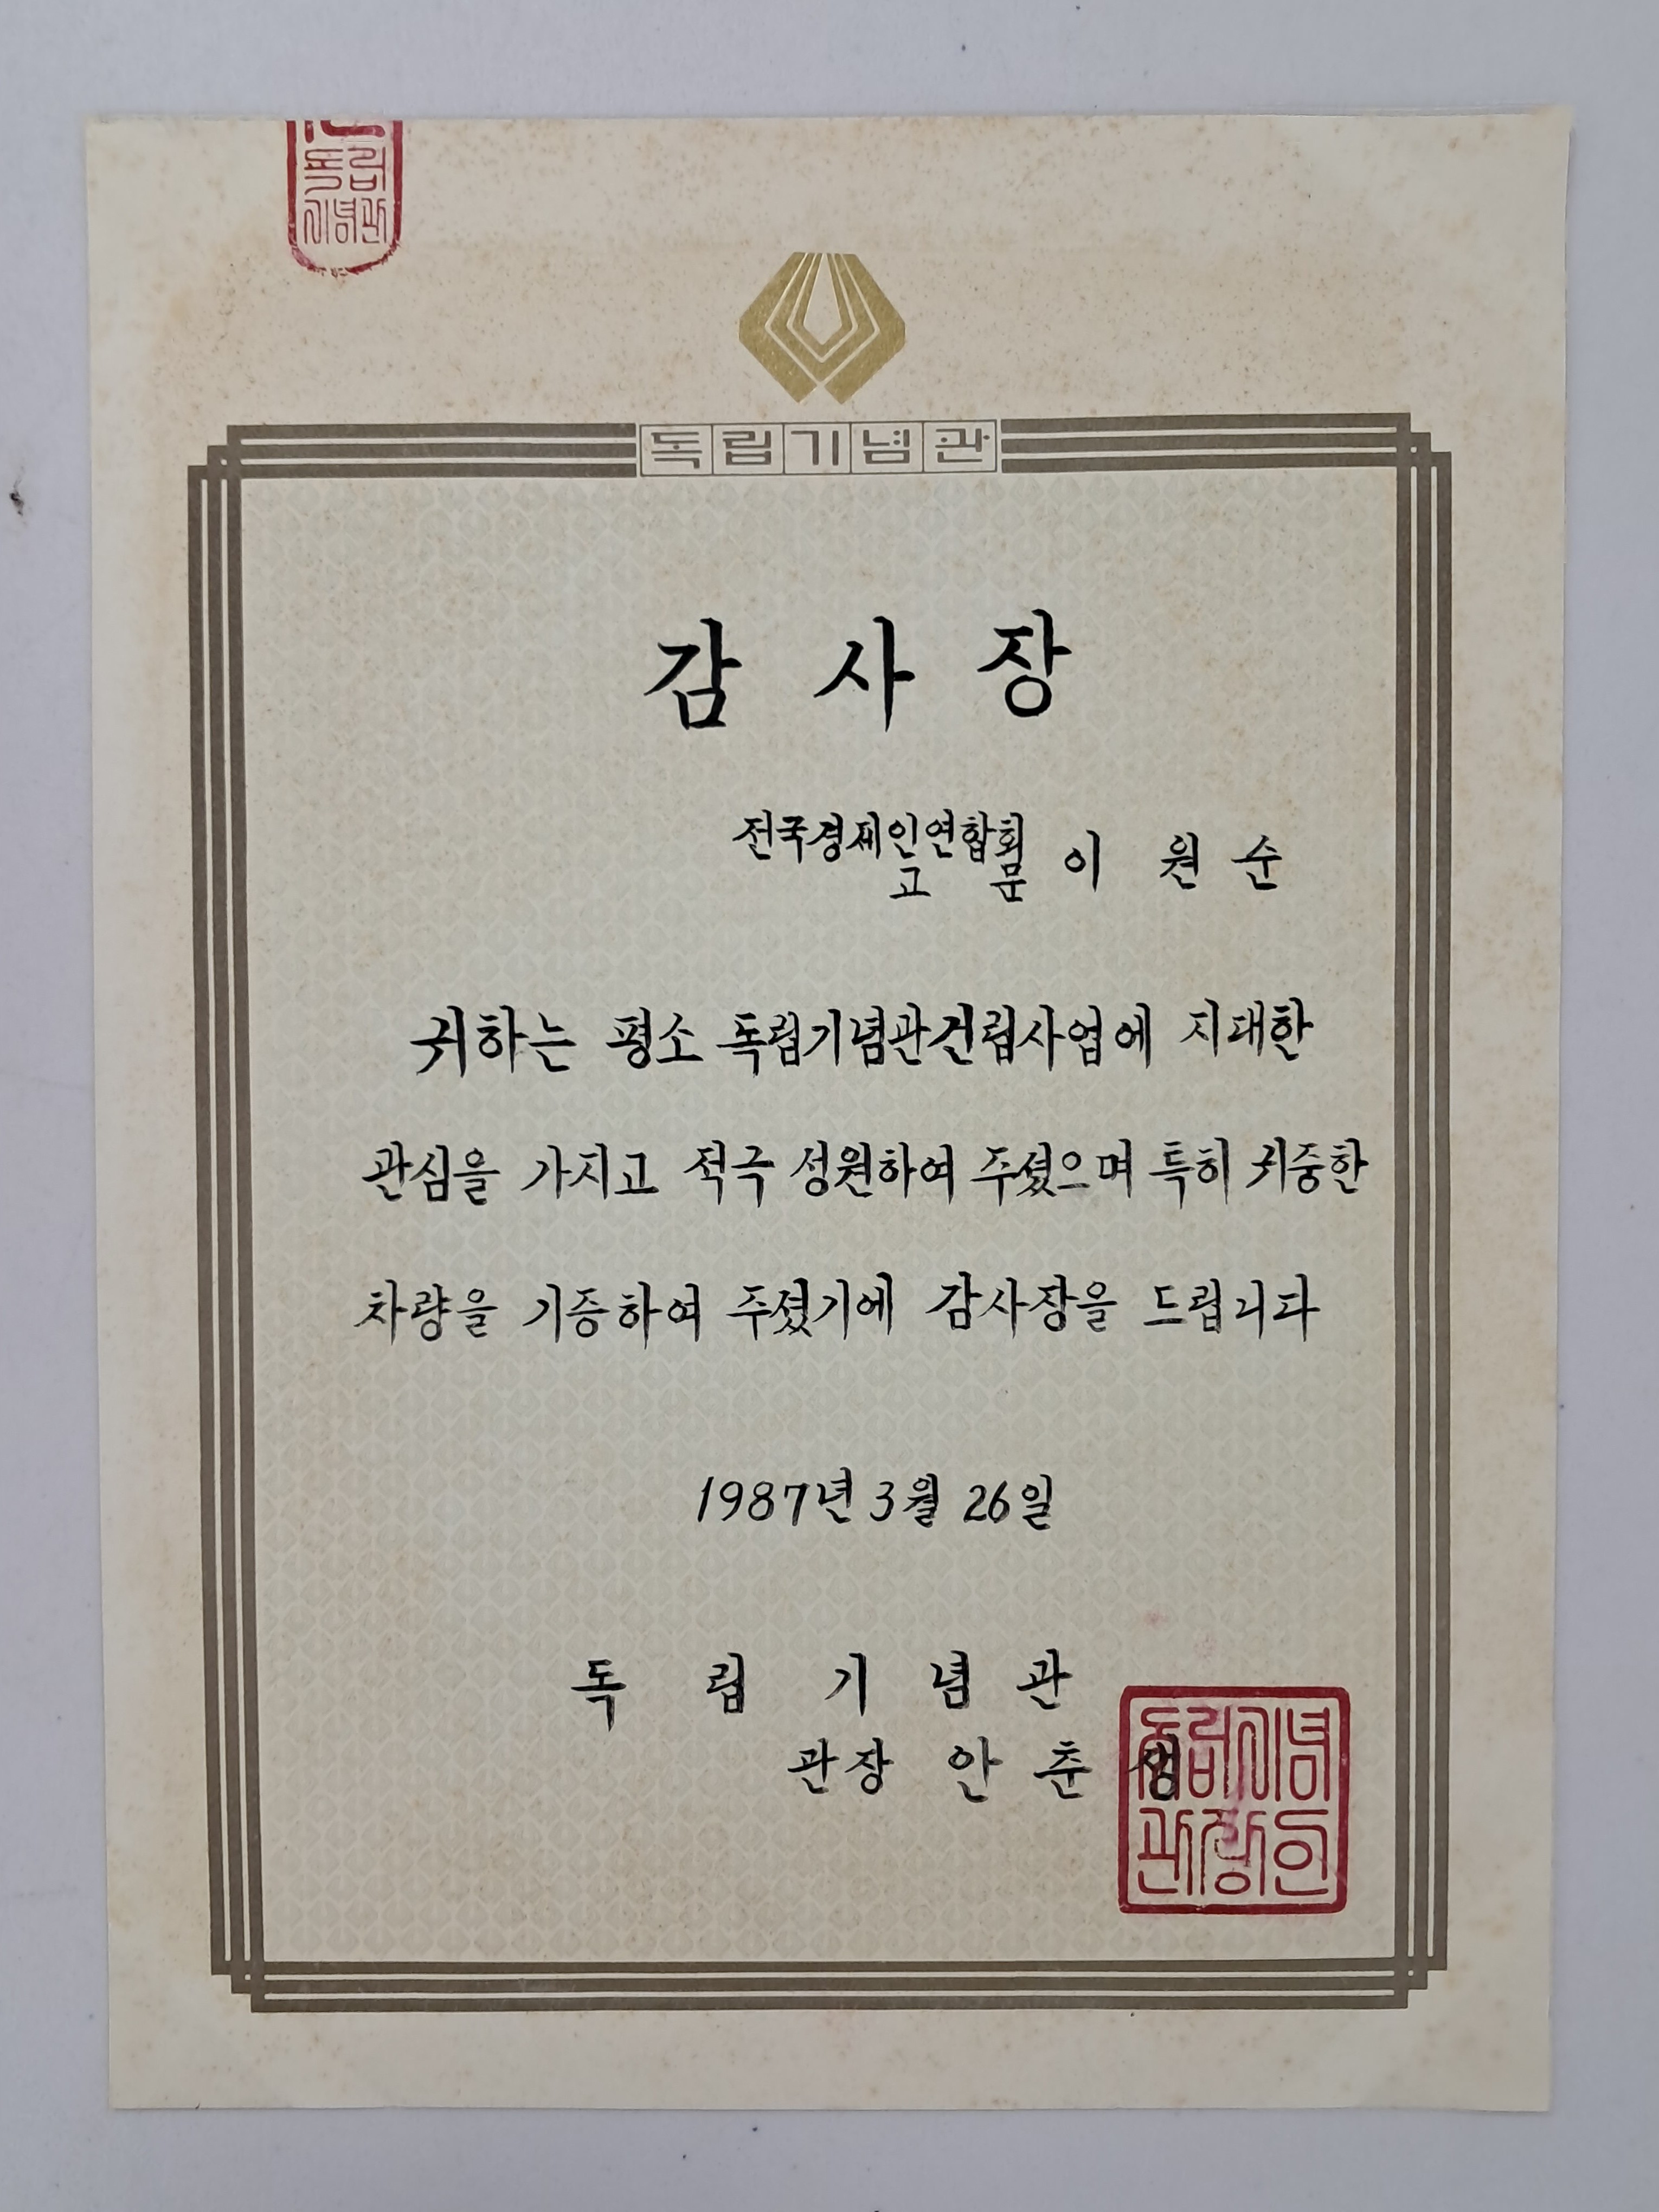 독립
기념관
독립기념관
감 사 장
전국경제인연합회
고 문 이 원 순
귀하는 평소 독립기념관건립사업에 지대한
관심을 가지고 적극 성원하여 주셨으며 특히 귀중한
차량을 기증하여 주셨기에 감사장을 드립니다
1987년 3월 26일
독 립 기 념 관
관장 안 춘 생
독립기념
관장인